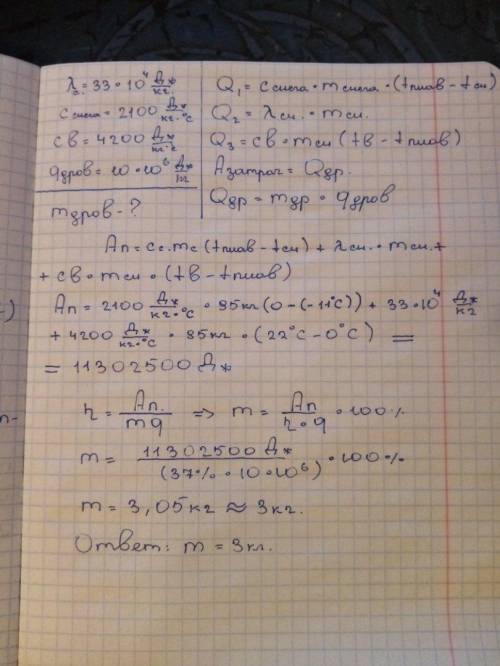 λс. = 33 · 10⁴ Дж/кг.
c снега = 2100 Дж/кг·°С
cв = 4200 Дж/кг·°С
qдров = 10 · 10⁶ Дж/кг
mдров - ?
Q₁ = cснега · mснега · (tплав - tсн)
Q₂ = λсн. · mсн.
Q₃ = cв · mсн (tв - tплав)
Aзатрач = Qдр.
Qдр = mдр · qдров
Aп = cс. mс (tплав - tсн) + λсн. · mсн. +
+ cв · mсн · (tв - tплав)
Aп = 2100 Дж/кг·°С · 85кг (0 - (-11°С)) + 33 · 10⁴ Дж/кг
+ 4200 Дж/кг·°С · 85кг · (22°С - 0°С) =
= 11302500 Дж
η = Aп./mq => m = Aп/η·q · 100%
m = 11302500 Дж/(37% · 10 · 10⁶) · 100%
m = 3,05кг ≈ 3кг.
Ответ: m = 3кг.